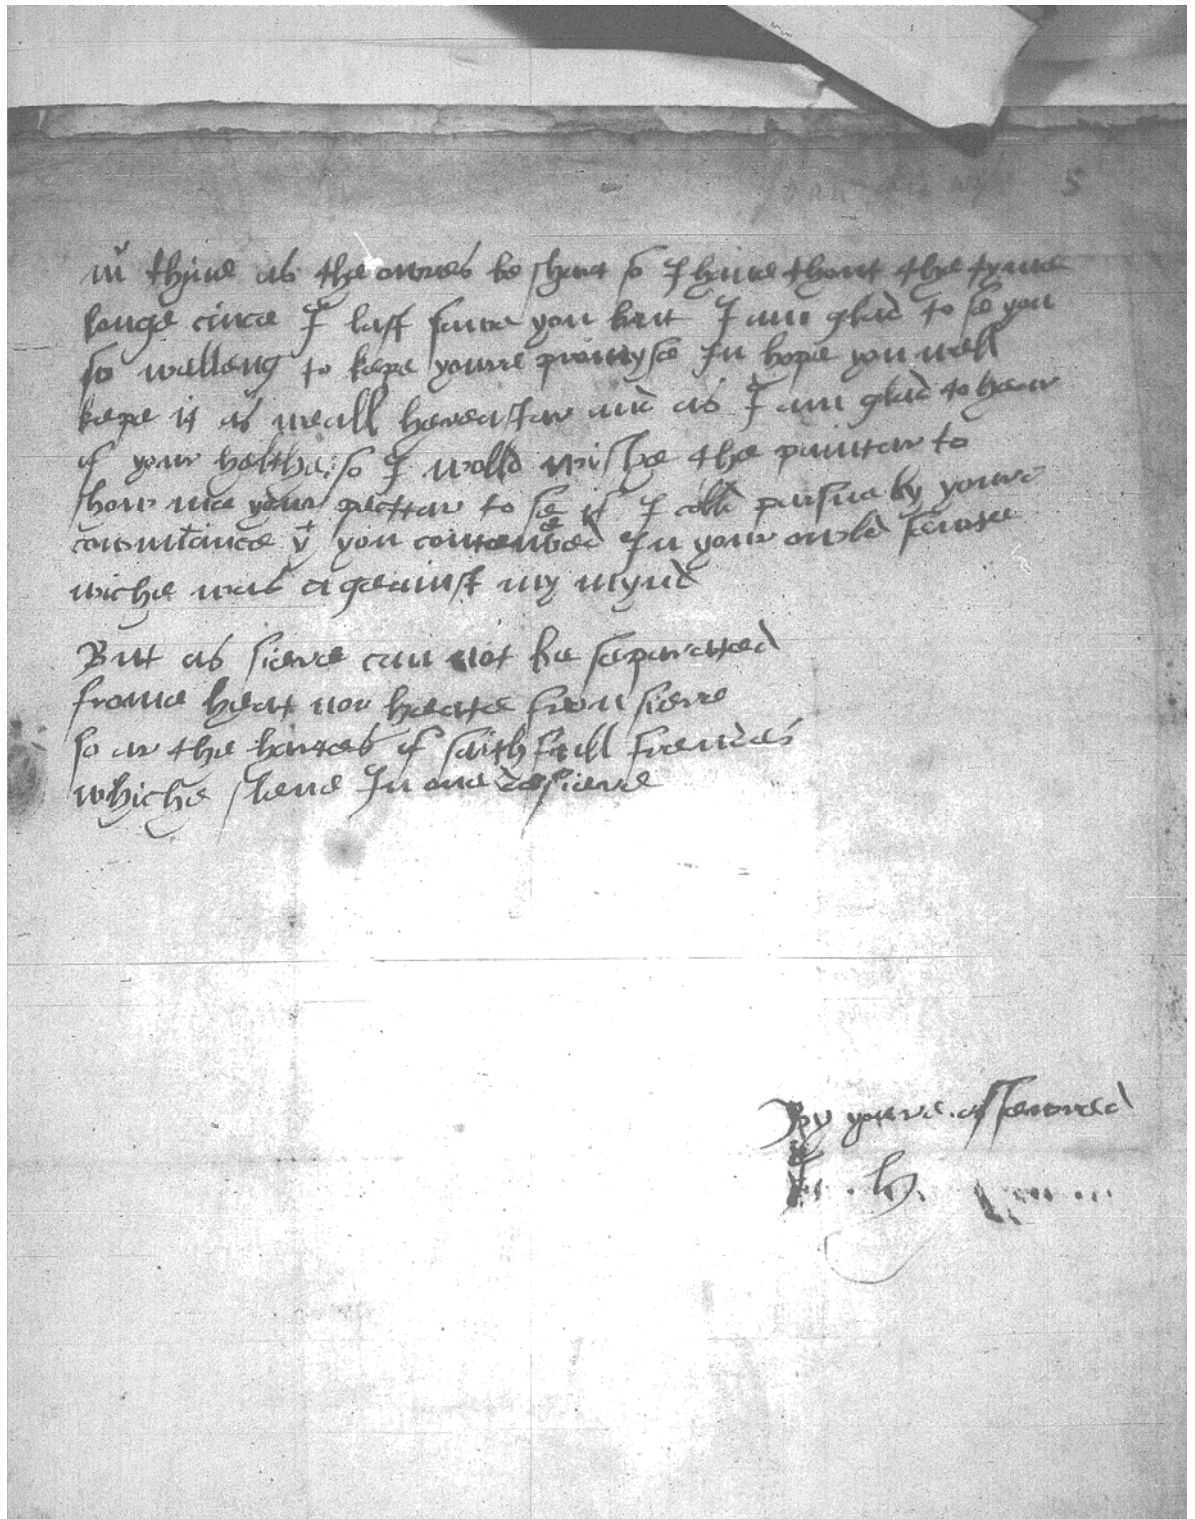 5
thyne as the owres be short so I have thout the tyme
longe cince I last sawe you but I am glad to se you
so welleng to kepe youre promyse In hope you well
kepe it as weall hereaftar and as I am glad to hear
of your helthe so I wolld wishe the paintar to
show me your pecttar to se if I colld parsue by youre
countance yt you contenwed In your owld
wiche was ageainst my mynd
But as fiere can not be separatted
frome heat nor heate from fiere
so ar the hartes of faithfull frendes
whiche stend In one desiere
By youre assewred
h